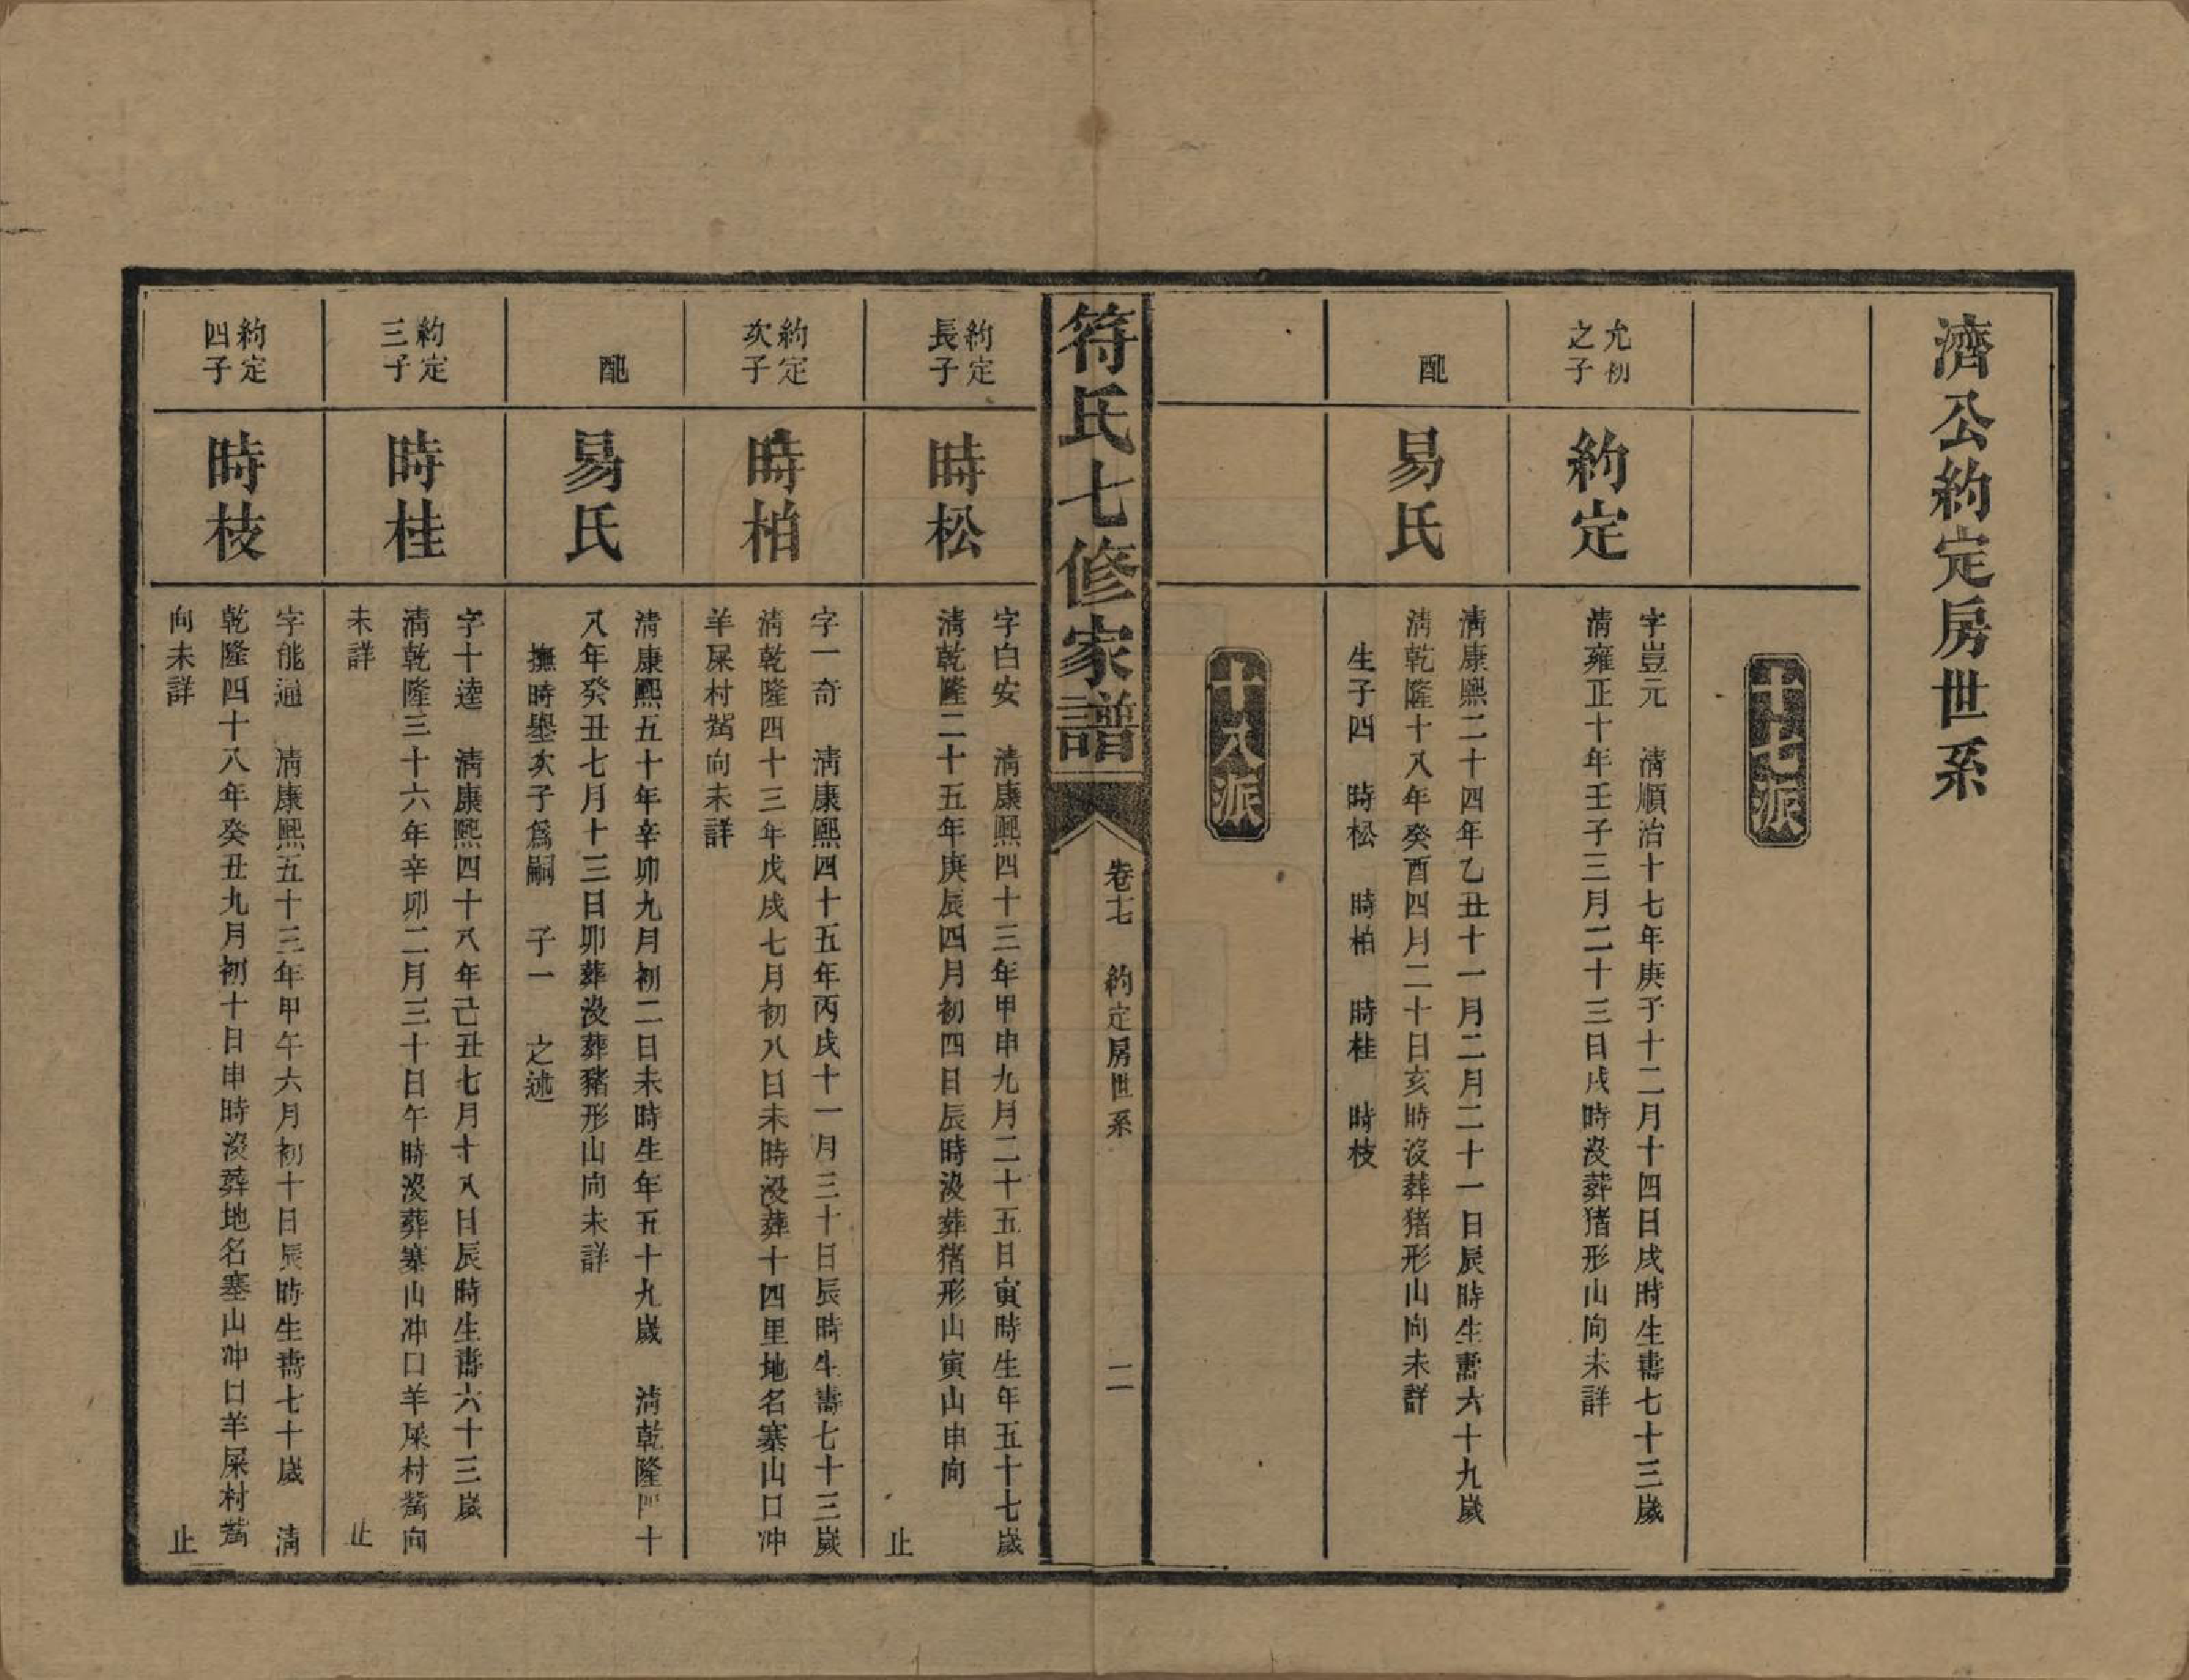 濟公約定房世系
十七派
允初之子
約定
字豈元　淸順治十七年庚子十二月十四日戌時生壽七十三歲
淸雍正十年壬子三月二十三日戌時沒葬猪形山向未詳
配
易氏
淸康熙二十四年乙丑十一月二月二十一日辰時生壽六十九歲
淸乾隆十八年癸酉四月二十日亥時沒葬猪形山向未詳
生子四　時松　時柏　時桂　時枝
十八派
符氏七修家譜
卷十七　約定房世系　二
約定長子
時松
字白安　淸康熙四十三年甲申九月二十五日寅時生年五十七歲
淸乾隆二十五年庚辰四月初四日辰時沒葬猪形山寅山申向
止
約定次子
時柏
字一奇　淸康熙四十五年丙戌十一月三十日辰時生壽七十三歲
淸乾隆四十三年戊戌七月初八日未時沒葬十四里地名寨山口冲
羊屎村嵩向未詳
配
易氏
淸康熙五十年辛卯九月初二日未時生年五十九歲　淸乾隆四十
八年癸丑七月十三日卯葬沒葬豬形山向未詳
撫時舉次子爲嗣　子一　之述
約定三子
時桂
字十逵　淸康熙四十八年己丑七月十八日辰時生壽六十三歲
淸乾隆三十六年辛卯二月三十日午時沒葬寨山冲口羊屎村嵩向
未詳
止
約定四子
時枝
字能通　淸康熙五十三年甲午六月初十日辰時生壽七十歲　淸
乾隆四十八年癸丑九月初十日申時沒葬地名塞山冲口羊屎村嵩
向未詳
止